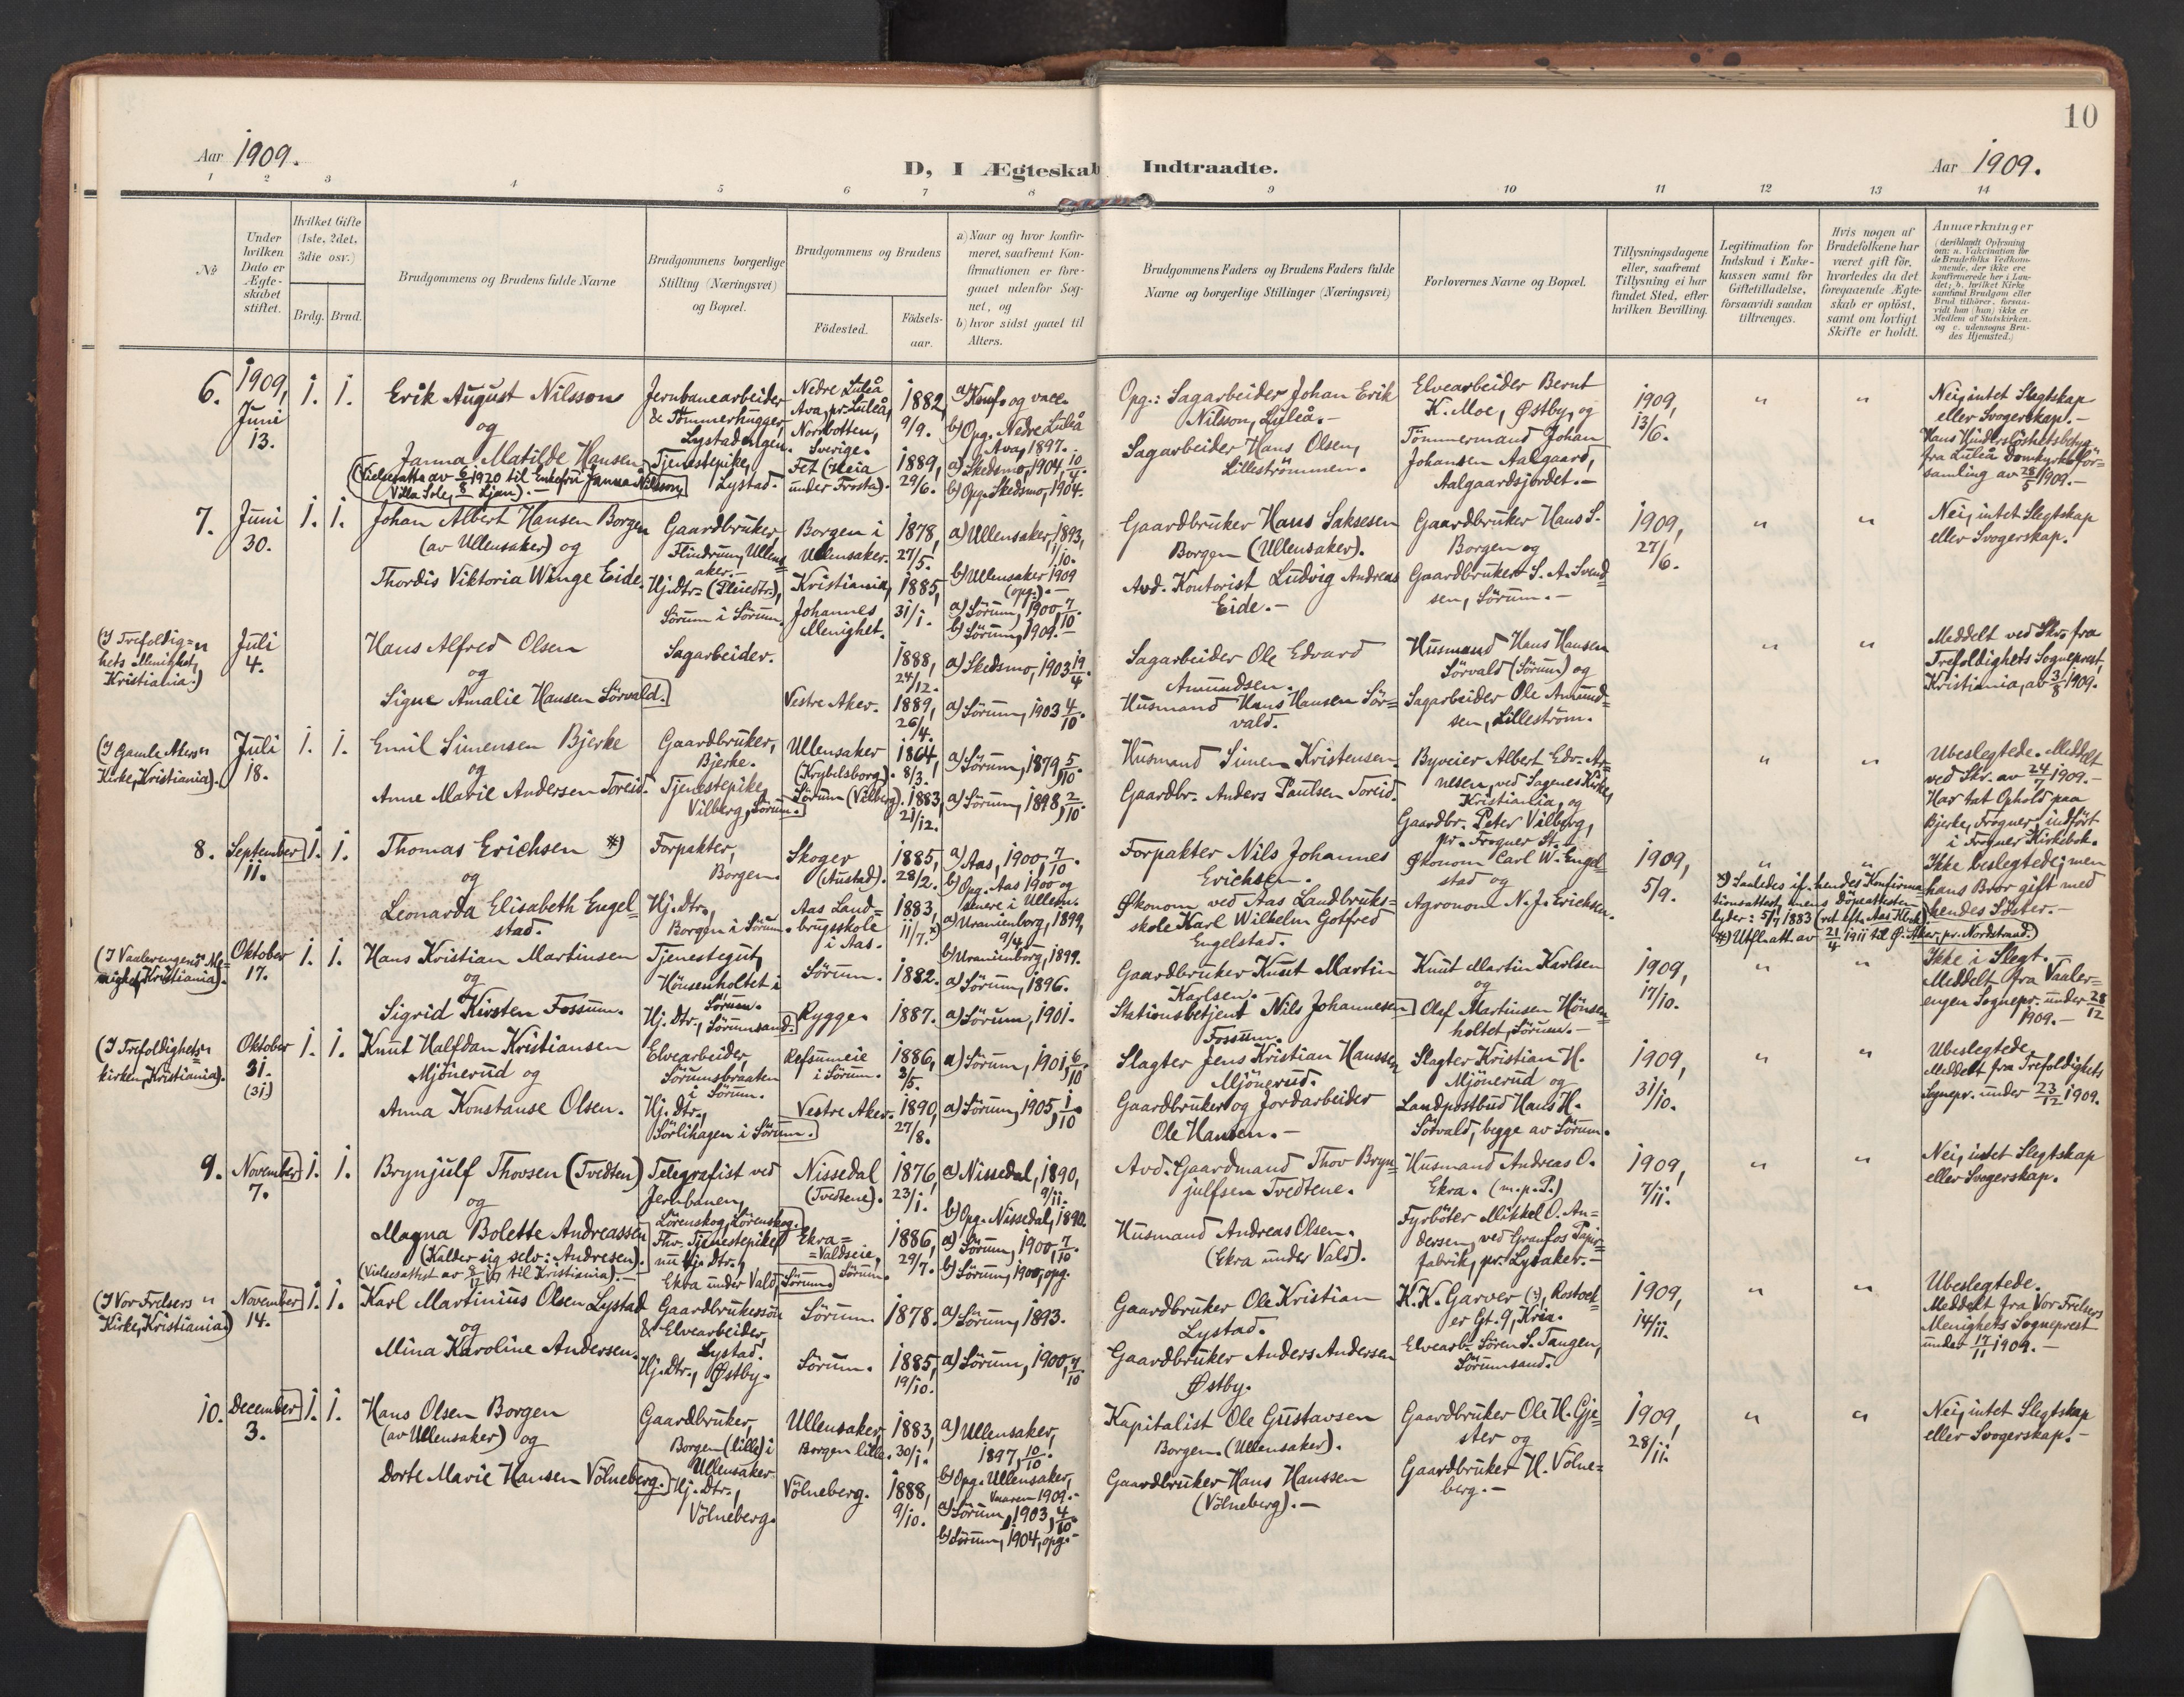 10
Aar 1909.
D, I Ægteskab Indtraadte.
Aar 1909.
1 2 3 4 5 6 7 8 9 10 11 12 13 14
No
Under hvilken Dato er Ægteskabet stiftet.
Hvilket Gifte (1ste, 2det, 3die osv.)
Brdg. Brud.
Brudgommens og Brudens fulde Navne
Brudgommens borgerlige Stilling (Næringsvei) og Bopæl.
Brudgommens og Brudens
Födested.
Födselsaar.
a) Naar og hvor konfirmeret, saafremt Konfirmationen er foregaaet udenfor Sognet, og
b) hvor sidst gaaet til Alters.
Brudgommens Faders og Brudens Faders fulde Navne og borgerlige Stillinger (Næringsvei)
Forlovernes Navne og Bopæl.
Tillysningsdagene eller, saafremt Tillysning ei har fundet Sted, efter hvilken Bevilling.
Legitimation for Indskud i Enkekassen samt for Giftetilladelse, forsaavidt saadan tiltrænges.
Hvis nogen af Brudefolkene har været gift før, hvorledes da det foregaaende Ægteskab er opløst, samt om lovligt Skifte er holdt.
Anmærkninger
(deriblandt Oplysning om: a. Vakcination for de Brudefolks Vedkommende, der ikke ere konfirmerede her i Landet; b. hvilket Kirkesamfund Brudgom eller Brud tilhörer, forsaavidt han (hun) ikke er Medlem af Statskirken, og c. udensogns Brudes Hjemsted.)
6. 1909, Juni 13. 1. 1.
Erik August Nilsson
og
Janna Matilde Hansen
(Vielsesatta av 6/8 1920 til Enkefru Janna Nilsson, Villa Sole, Ljan). -
Jernbanearbeider & Tömmerhugger, Lystadengen.
Tjenestepike, Lystad.
Nedre Luleå Ava, pr. Luleå, Norrbotten, Sverige.
Fet (Heia under Frosta).
1882, 9/9.
1889, 29/6.
a) Konf. og vacc.
b) Opg. Nedre Luleå, Ava, 1897.
a) Skedsmo, 1904, 10/4.
b) Opg. Skedsmo, 1904.
Opg.: Sagarbeider Johan Erik Nilsson, Luleå. -
Sagarbeider Hans Olsen, Lilleströmmen.
Elvearbeider Bernt K. Moe, Østby, og
Tömmermand Johan Johansen Aalgaard, Aalgaardsjordet. -
1909, 13/6.
" "
Nei, intet Slegtskap eller Svogerskap. -
Hans Hinderslöshetsbetyg fra Luleå Domkyrkoförsamling av 28/5 1909. -
7. Juni 30. 1. 1.
Johan Albert Hansen Borgen
(av Ullensaker) og
Thordis Viktoria Winge Eide.
Gaardbruker, Flindrum, Ullensaker. -
Hj. Dtr. (Pleiedtr.), Sörum i Sörum.
Borgen i Ullensaker.
Kristiania, Johannes Menighet.
1878, 27/5.
1885, 31/1.
a) Ullensaker, 1893, 1/10.
b) Ullensaker 1909 (opg.). -
a) Sörum, 1900, 7/10.
b) Sörum, 1909. -
Gaardbruker Hans Saksesen Borgen (Ullensaker).
Avd. Kontorist Ludvig Andreas Eide. -
Gaardbruker Hans S. Borgen og
Gaardbruker S. A. Svendsen, Sörum. -
1909, 27/6.
" "
Nei, intet Slegtskap eller Svogerskap.
(I Trefoldighets Menighet, Kristiania.)
" Juli 4.
Hans Alfred Olsen
og
Signe Amalie Hansen Sörvald.
Sagarbeider.
Vestre Aker.
1888, 24/12.
1889, 26/4.
a) Skedsmo, 1903 19/4.
a) Sörum, 1903 4/10.
Sagarbeider Ole Edvard Amundsen.
Husmand Hans Hansen Sörvald.
Husmand Hans Hansen Sörvald (Sörum) og
Sagarbeider Ole Amundsen, Lilleström.
" "
Meddelt ved Skr. fra Trefoldighets Sogneprest, Kristiania, av 3/8 1909.
(I Gamle Akers Kirke, Kristiania).
" Juli 18. 1. 1.
Emil Simensen Bjerke
og
Anne Marie Andersen Toreid.
Gaardbruker, Bjerke.
Tjenestepike, Vilberg, Sörum.
Ullensaker (Krybelsborg).
Sörum (Vilberg).
1864, 8/3.
1883, 21/12.
a) Sörum, 1879, 5/10.
a) Sörum, 1898, 2/10.
Husmand Simen Kristensen.
Gaardbr. Anders Paulsen Toreid.
Byveier Albert Edv. Arnesen, ved Sagenes Kirke, Kristiania, og
Gaardbr. Peter Vilberg, pr. Frogner St.
" "
Ubeslegtede. Meddelt ved Skr. av 24/7 1909. -
Har tat Ophold paa Bjerke, Frogner, indført i Frogner Kirkebok.
8. September 11. 1. 1.
Thomas Erichsen #)
og
Leonarda Elisabeth Engelstad.
Forpakter, Borgen.
Hj. Dtr., Borgen i Sörum.
Skoger (Austad).
Aas Landbrugsskole i Aas.
1885, 28/2.
1883, 11/7. *)
a) Aas, 1900, 7/10.
b) Opg. Aas 1900 og senere i Ullens.
a) Uranienborg, 1899, 9/4.
b) Uranienborg, 1899.
Forpakter Nils Johannes Erichsen.
Økonom ved Aas Landbruksskole Karl Wilhelm Gotfred Engelstad.
Økonom Carl W. Engelstad og
Agronom N. J. Erichsen.
1909, 5/9.
" "
*) Saaledes if. hendes Konfirmationsattest, mens Döpeattesten lyder: 5/7 1883 (ret eft. Aas Kbok).
#) Utfl.att. av 21/4 1911 til Ø. Aker, pr. Nordstrand.)
Ikke beslegtede; men hans Bror gift med hendes Söster. -
(I Vaalerengens Menighet, Kristiania).
" Oktober 17. 1. 1.
Hans Kristian Martinsen
og
Sigrid Kirsten Fossum.
Tjenestegut, Hönsenholtet i Sörum.
Hj. Dtr., Sörumsand.
Sörum.
Rygge.
1882.
1887.
a) Sörum, 1896.
a) Sörum, 1901.
Gaardbruker Knut Martin Karlsen. -
Stationsbetjent Nils Johannesen Fossum.
Knut Martin Karlsen
og
Olaf Martinsen Hönsenholtet, Sörum. -
1909, 17/10.
" "
Ikke i Slegt. -
Meddelt fra Vaalerengen Sognepr. under 28/12 1909. -
(I Trefoldighetskirken, Kristiania).
" Oktober 31. (31.) 1. 1.
Knut Halfdan Kristiansen
Mjönerud og
Anna Konstanse Olsen.
Elvearbeider, Sörumsbraaten i Sörum.
Hj. Dtr., Sörlihagen i Sörum.
Refsumeie i Sörum.
Vestre Aker.
1886, 3/5.
1890, 27/8.
a) Sörum, 1901, 6/10.
a) Sörum, 1905, 1/10.
Slagter Jens Kristian Hanssen Mjönerud.
Gaardbruker og Jordarbeider Ole Hansen. -
Slagter Kristian H. Mjönerud og
Landpostbud Hans H. Sörvald, begge av Sörum.
1909, 31/10.
" "
Ubeslegtede.
Meddelt fra Trefoldighets Sognepr. under 23/12 1909.
9. November 7. 1. 1.
Brynjulf Thovsen (Tvedten)
og
Magna Bolette Andreassen
(Kalder sig selv: Andresen).
(Vielsesattest av 8/12 17 til Kristiania). -
Telegrafist ved Jernbanen, Lörenskog, Lörenskog.
Fhv. Tjenestepike, nu Hj. Dtr., Ekra under Vald, Sörum.
Nissedal (Tvedtene).
Ekra = Valdseie, Sörum.
1876, 23/1.
1886, 29/7.
a) Nissedal, 1890, 9/11.
b) Opg. Nissedal, 1890.
a) Sörum, 1900, 7/10.
b) Sörum, 1900, opg.
Avd. Gaardmand Thov Brynjulfsen Tvedtene.
Husmand Andreas Olsen.
(Ekra under Vald).
Husmand Andreas O. Ekra. (m. p. P.)
Fyrböter Mikkel O. Andersen, ved Granfos Papirfabrik, pr. Lysaker. -
1909, 7/11.
" "
Nei, intet Slegtskap eller Svogerskap.
(I Vor Frelsers Kirke, Kristiania.)
" November 14. 1. 1.
Karl Martinius Olsen Lystad
og
Mina Karoline Andersen.
Gaardbrukersön & Elvearbeider, Lystad.
Hj. Dtr., Østby.
Sörum.
Sörum.
1878.
1885, 19/10.
a) Sörum, 1893.
a) Sörum, 1900, 7/10
Gaardbruker Ole Kristian Lystad.
Gaardbruker Anders Andersen Østby.
K. K. Garver (?), Rostocker Gt. 9, Kria.
Elvearb. Sören S. Tangen, Sörumsand.
1909, 14/11.
" "
Ubeslegtede.
Meddelt fra Vor Frelsers Menighets Sogneprest under 17/11 1909. -
10. December 3. 1. 1.
Hans Olsen Borgen
(av Ullensaker) og
Dorte Marie Hansen Völneberg.
Gaardbruker, Borgen (lille) i Ullensaker.
Hj. Dtr., Völneberg.
Ullensaker, Borgen lille.
Völneberg.
1883, 30/1.
1888, 9/10.
a) Ullensaker, 1897, 10/10.
b) Opg. Ullensaker, Vaaren 1909. -
a) Sörum, 1903, 4/10.
b) Sörum, 1904, opg. -
Kapitalist Ole Gustavsen Borgen. (Ullensaker).
Gaardbruker Hans Hanssen (Völneberg). -
Gaardbruker Ole H. Gjester og
Gaardbruker H. Völneberg. -
1909, 28/11.
" "
Nei, intet Slegtskap eller Svogerskap. -